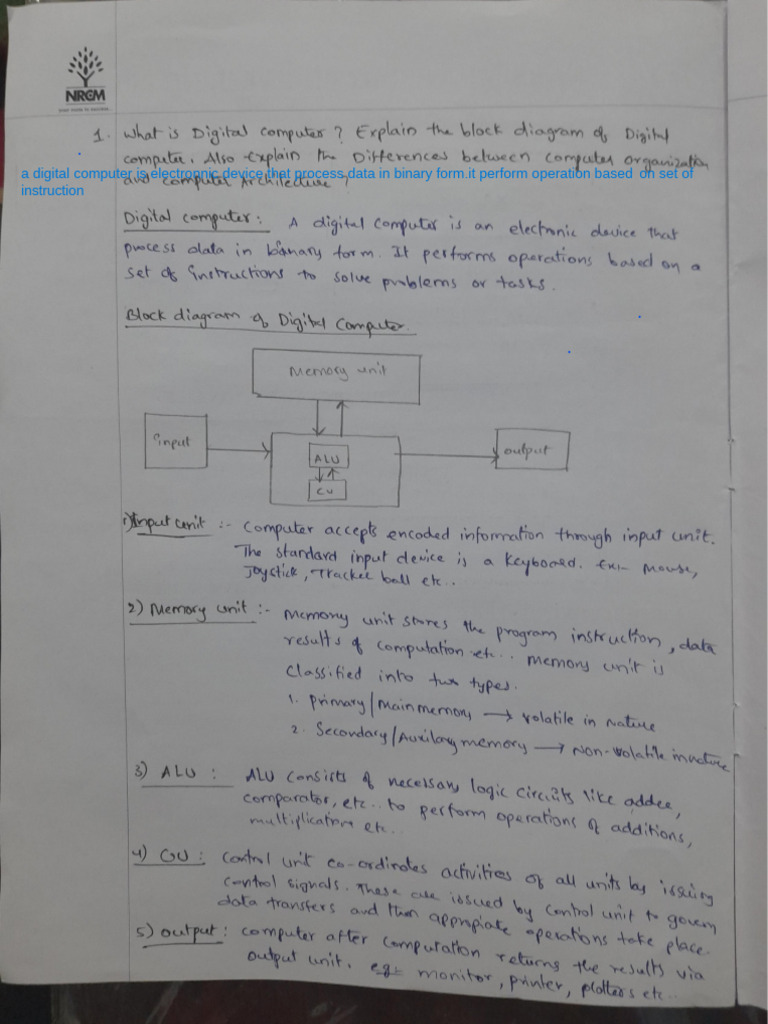 NRCM
1. What is Digital computer ? Explain the block diagram of Digital
computer. Also Explain the Differences between computer organization
and computer Architecture ?
a digital computer is electronnic device that process data in binary form.it perform operation based on set of
instruction
Digital computer : A digital computer is an electronic device that
process data in binary form. It performs operations based on a
set of instructions to solve problems or tasks.
Block diagram of Digital Computer.
Memory unit
input
ALU
CU
output
1) Input unit :- Computer accepts encoded information through input unit.
The standard input device is a keyboard. Ex:- Mouse,
Joystick, Tracker ball etc..
2) Memory unit :- Memory unit stores the program instruction, data
results of computation etc.. Memory unit is
classified into two types.
1. Primary/Main memory → volatile in nature
2. Secondary/Auxilary memory → Non-volatile in nature
3) ALU : ALU consists of necessary logic circuits like adder,
comparator, etc.. to perform operations of additions,
multiplications etc..
4) CU : Control unit co-ordinates activities of all units by issuing
control signals. These are issued by control unit to govern
data transfers and then appropiate operations take place.
5) output : computer after computation returns the results via
output unit. eg:- monitor, printer, plotters etc..